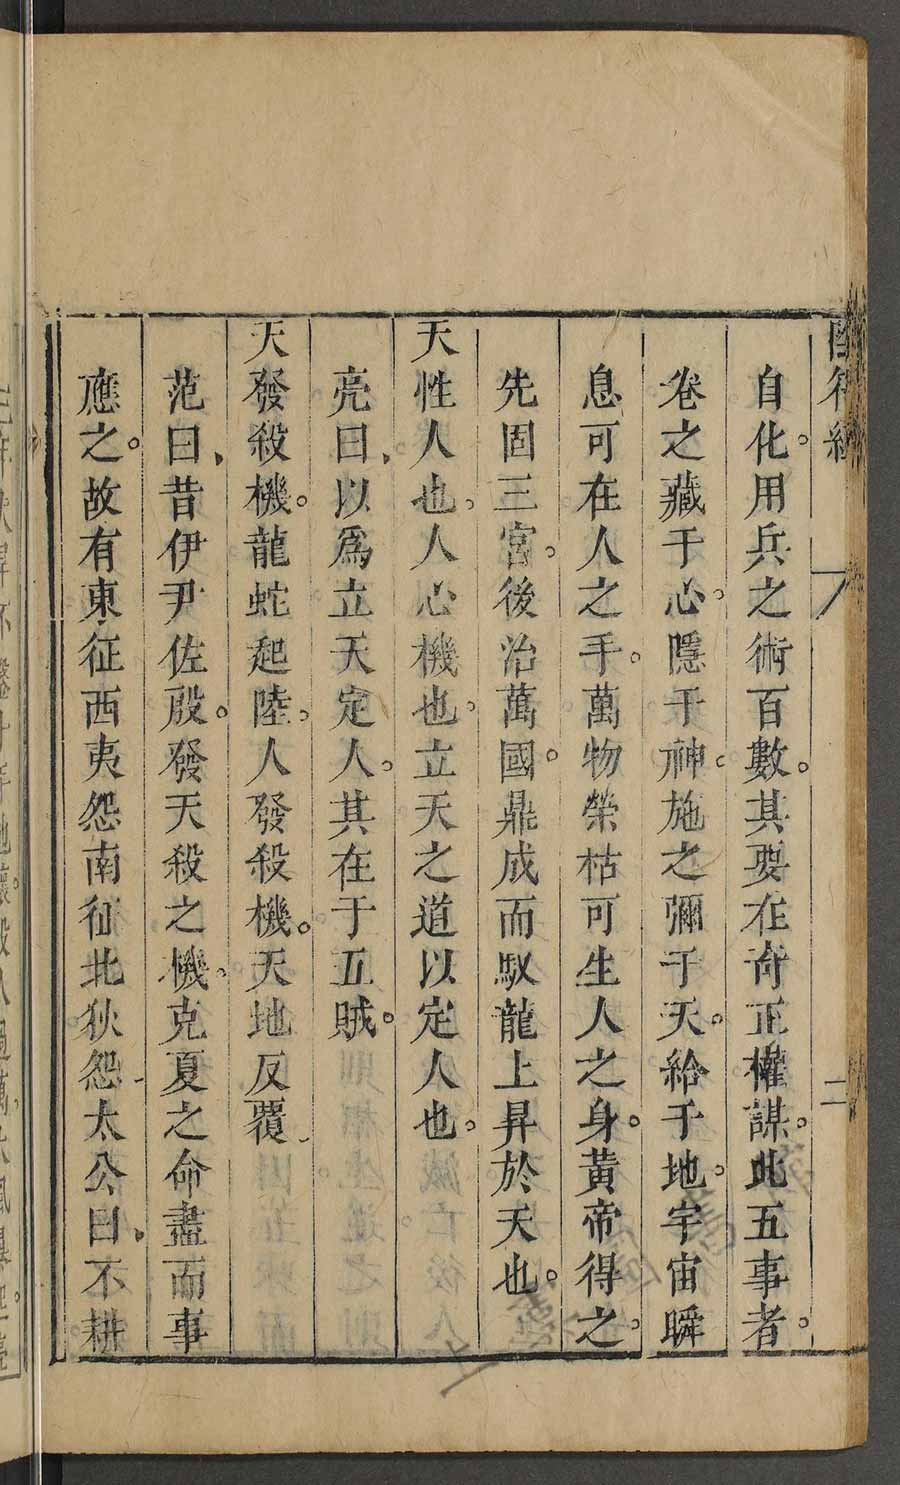 符經 二
自化。用兵之術百數。其要在奇正權謀。此五事者。
卷之藏于心。隱于神。施之彌于天。給于地。宇宙瞬
息可在人之手。萬物榮枯可生人之身。黃帝得之。
先固三宮。後治萬國。鼎成而馭龍上昇於天也。
天性人也。人心機也。立天之道以定人也。
亮曰、以爲立天定人。其在于五賊。
天發殺機。龍蛇起陸。人發殺機。天地反覆、
范曰、昔伊尹佐殷。發天殺之機。克夏之命盡而事
應之。故有東征西夷怨南征北狄怨太公曰、不耕